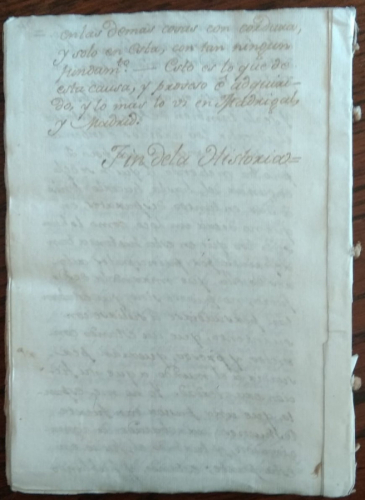 en las demas cosas con cordura,
y solo en esta, con tan ningun
fundamto. — Esto es lo que de
esta causa, y proceso é adquiri-
do, y lo mas lo vi en Madrigal,
y Madrid.
Fin de la Historia =